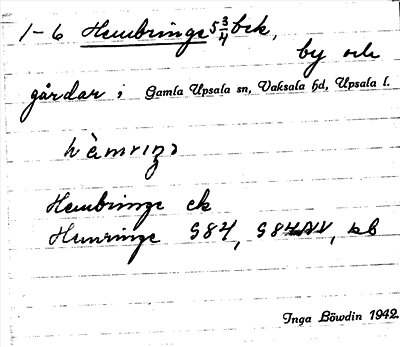 1-6 Hembringe 5 3/4 bek,
by och
gårdar i Gamla Upsala sn, Vaksala hd, Upsala l.
Hembringe ek
Hunringe G84, G84, kb
Inga Löwdin 1942.